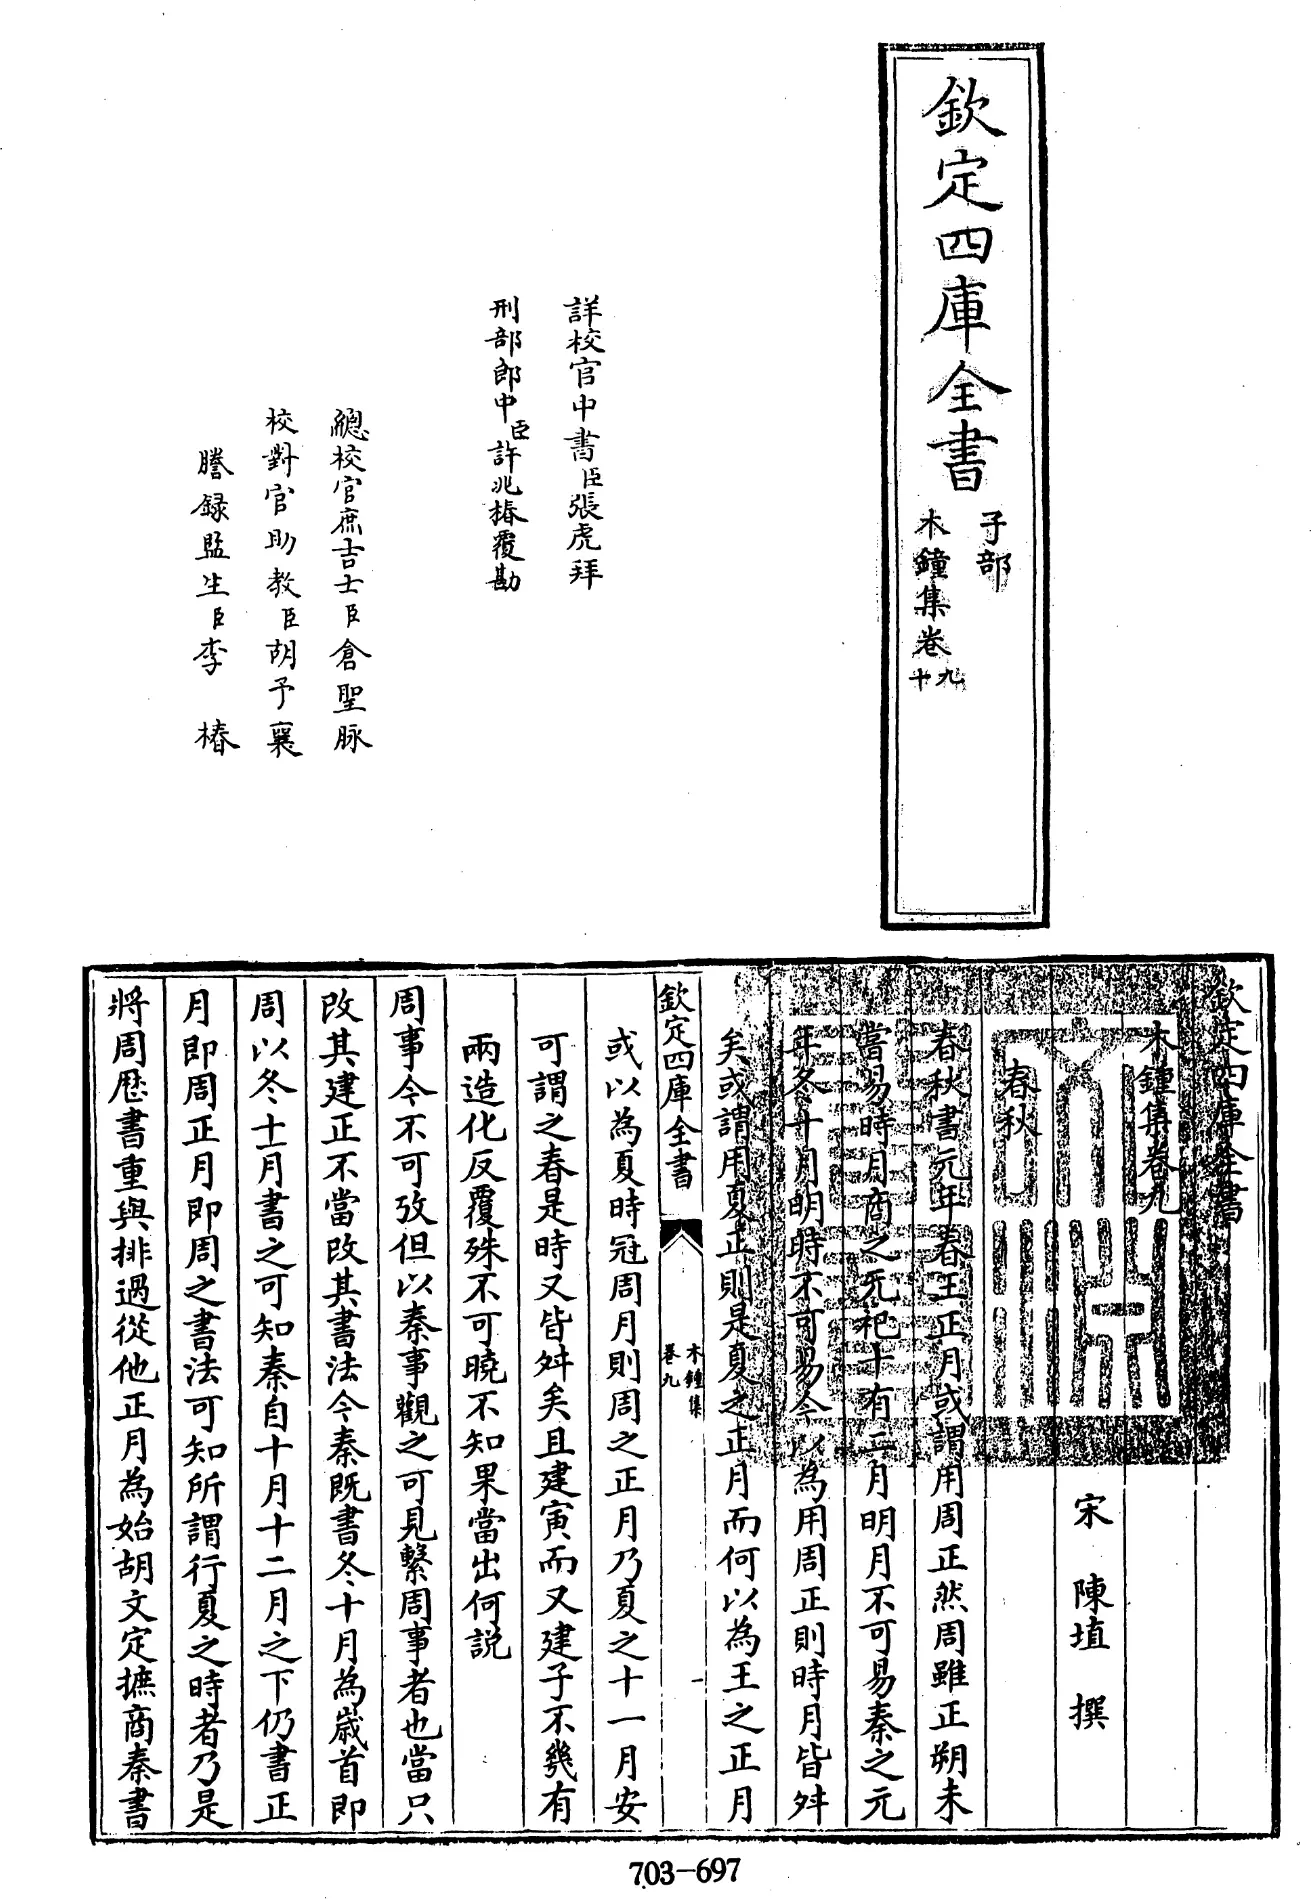 欽定四庫全書
子部
木鐘集卷九
十
詳校官中書臣張虎拜
刑部郎中臣許兆椿覆勘
總校官庶吉士臣倉聖脉
校對官助教臣胡予襄
謄録監生臣李椿
欽定四庫全書
木鍾集卷九
宋 陳埴 撰
春秋
春秋書元年春王正月或謂用周正然周雖正朔未
嘗易時月商之元祀十有二月明月不可易秦之元
年冬十月明時不可易今以為用周正則時月皆舛
矣或謂用夏正則是夏之正月而何以為王之正月
欽定四庫全書
木鍾集
卷九
一
或以為夏時冠周月則周之正月乃夏之十一月安
可謂之春是時又皆舛矣且建寅而又建子不幾有
兩造化反覆殊不可曉不知果當出何説
周事今不可攷但以秦事觀之可見繫周事者也當只
改其建正不當改其書法今秦既書冬十月為歲首即
周以冬十一月書之可知秦自十月十二月之下仍書正
月即周正月即周之書法可知所謂行夏之時者乃是
將周厯書重與排過從他正月為始胡文定摭商秦書
703-697